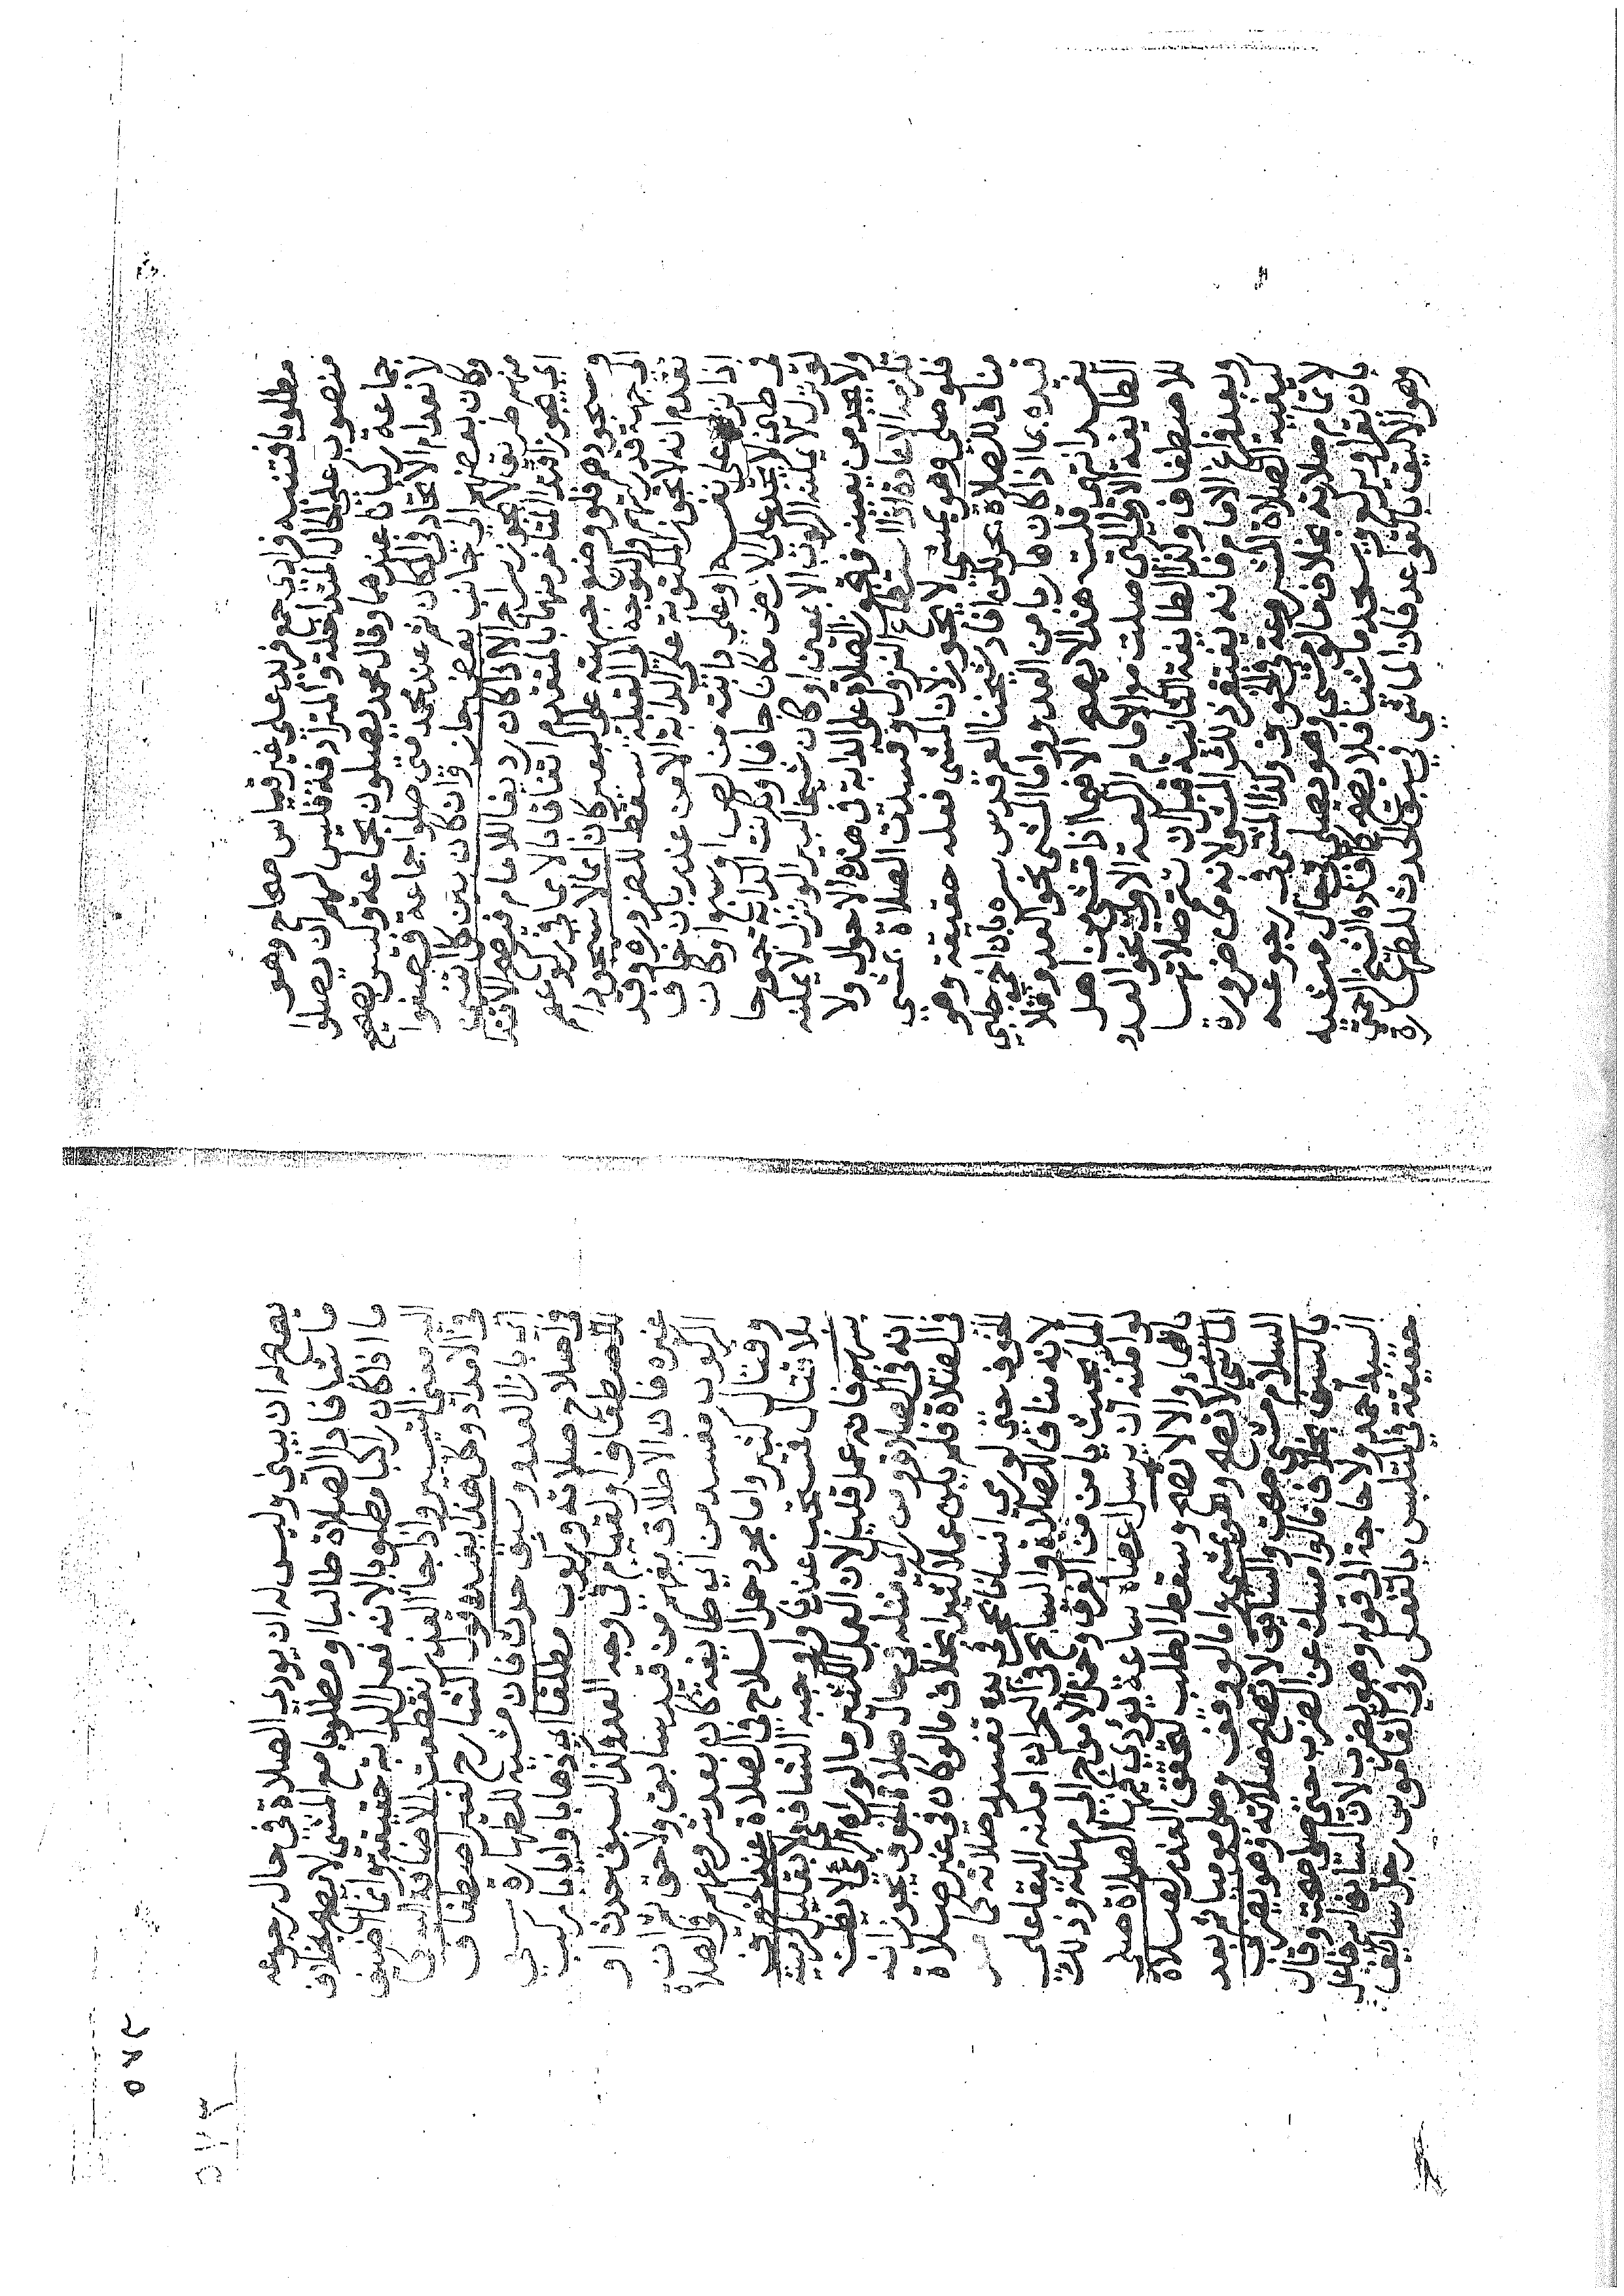 مطلوبا فتنبه فرادى جمع فريد على غير قياس مصباح وهو
منصوب على الحال المتداخلة والمترادفة فليس لهم ان يصلوا
جماعة ركبانا عندهما وقال محمد يصلون بجماعة وليس بصحيح
لانعدام الاتحاد في المكان ثم عند محمد متى صلوا جماعة فصفوا
وكان بعضهم الى جانب بعض جاز وان كان بين كل اثنين
منهم طريق لا يجوز سراج الا اذا كان رديفا للامام فيصح الاقتدا
اي يجوز اقتدا المتاخر منهما بالمتقدم اتفاقا بالايما في ركوعهم
وسجودهم فلو وضع جبهته على البعير كان ايما لا سجودا
الى جهة قدرتهم والتوجه الى القبلة يسقط للضرورة وقد
تقدم انه لا تجوز المكتوبة على الدابة الا من عذر بان خاف
ان نزل على نفسه او على دابته من لص او سبع او كان
في طين لا يجد على الارض مكانا جافا او كانت الدابة جموحا
لو نزل لا يمكنه الركوب الا بمعين او كان شيخا كبيرا لو نزل لا يمكنه
ولا يجد من يعينه فتجوز الصلاة على الدابة في هذه الاحوال ولا
تلزمه الاعادة اذا استطاع النزول وفسدت الصلاة بمشي
فلو صلى وهو يمشي لا يجوز لان المشي فعله حقيقة وهو
مناف للصلاة بحر لكن افاد شيخنا العم قدس سره بان اخي جلبي
قيده بما اذا كان هاربا من العدو واما المشي نحو العدو فلا
يفسد انتهى قلت هذا لا يصح الا فيما اذا مشى من اهل
الطايفة الاولى التي صلت مع الامام الركعة الاولى نحو العدو
للاصطفاف وكذا الطايفة الثانية قبل ان تتم صلاتها
وبعد فراغ الامام فانه يغتفر ذلك المشي لانه من ضرورة
كيفية الصلاة المشروعة في الخوف وكذا المشي في رجوعه
لاتمام صلاته بخلاف ما لو مشى وهو يصلي في حال مشيه
بان يقرا ويركع ويسجد ماشيا فلا يصح كما ذكره الشيخ
وهو الاليق بالقواعد فان الماشي في سبق الحدث للطهارة
يصح له ان يبني وليس له ان يودي الصلاة في حال رجوعه
ماشيا فاداء الصلاة طالبا او مطلوبا مع المشي لا يصح بخلاف
ما اذا كان راكبا مطلوبا لانه فعل الدابة حقيقة وانما اضيف
اليه معنى التسيير واذا جا العذر انقطعت الاضافة اليه
والامداد وكل هذا يفيده قول الشارح لغير اصطفاف
اي بازا العدو وسبق حدث فان مشيه للطهارة
واصلاح صلاته وركوب مطلقا اي ذهابا وايابا
للاصطفاف او لقيام في وجه العدو كذا السبق حدث او
غيره فان الاطلاق يفهم من قيد سابق ولاحق ثم ان
الركوب مفسد من اي طايفة كان بعد شروعهم في الصلاة
وقتال كثير واما مجرد حمل السلاح في الصلاة عند الخوف
بلا قتال فيستحب عندنا واوجبه الشافعي لا بقليل كرمية
سهم فانه عمل قليل لان العمل الكثير ما لو راه الرائي لا يظن
انه في الصلاة وقوس مثله في حال صلاة الخوف يجوز انه
في الصلاة فلم يكن عملا كثيرا بخلاف ما لو كان في غير صلاة
الخوف حتى لو رمى انسانا بحجر في يده تفسد صلاته كما مر
لانه مناف للصلاة والسابح في البحر ان امكنه البقا على
الماء بحيث يامن من الغرق وحمل الامواج الى مهلكة وذلك
لو امكنه ان يرسل اعضاه ساعة يؤدي فيها الصلاة صلى
بالايماء والا لا تصح وسقط الطلب لتحقق العذر لصلاة
الماشي لا تصح وهو يمشي اما لو وقف وصلى موميا ثم بعد
السلام مشى صحت والسايف لا تصح صلاته وهو يضرب
بالسيف بخلاف ما لو امسك عن الضرب حتى صلى صحت وقال
السيد احمد ولا حاجة الى قوله وهو يضرب لان السايف داخل
حقيقة في المتلبس بالفعل وفي القاموس رجل سايف
٥٧٢
٥٧٢